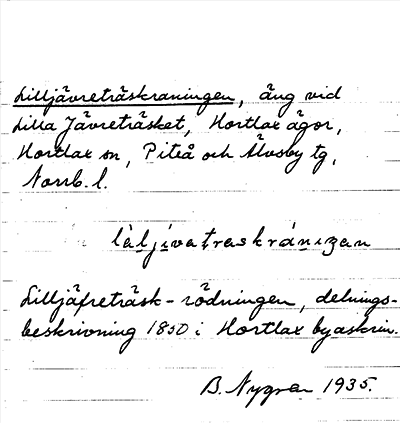 Lilljävreträskraningen, äng vid
Lilla Jävreträsket, Hortlax ägor,
Hortlax sn, Piteå och Älvsby tg,
Norrb. l.
làljivatraskrániŋan
Lilljäfreträsk-rödningen, delnings-
beskrivning 1850 i Hortlax byaskrin.
B. Nygren 1935.